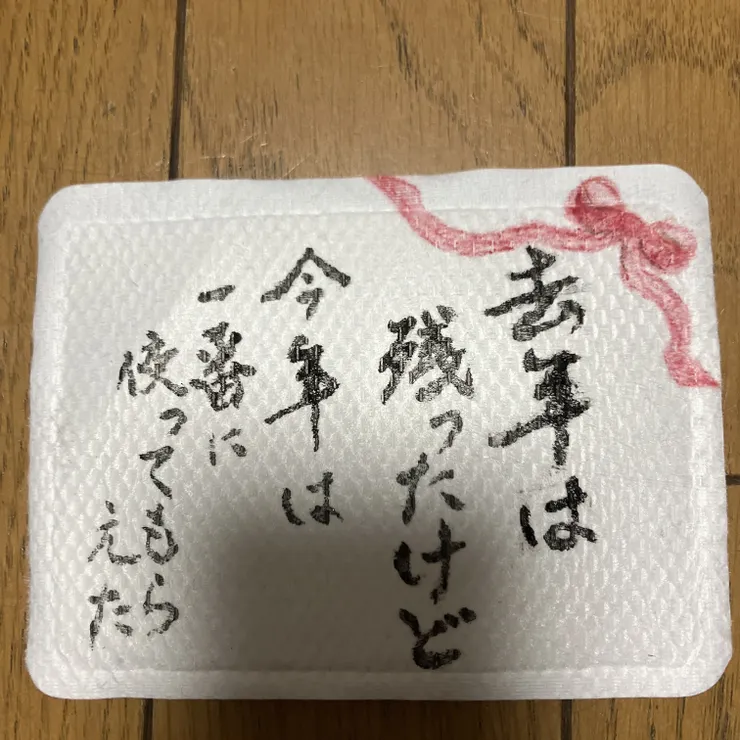 去年は
残ったけど
今年は
一番に
使ってもら
えた